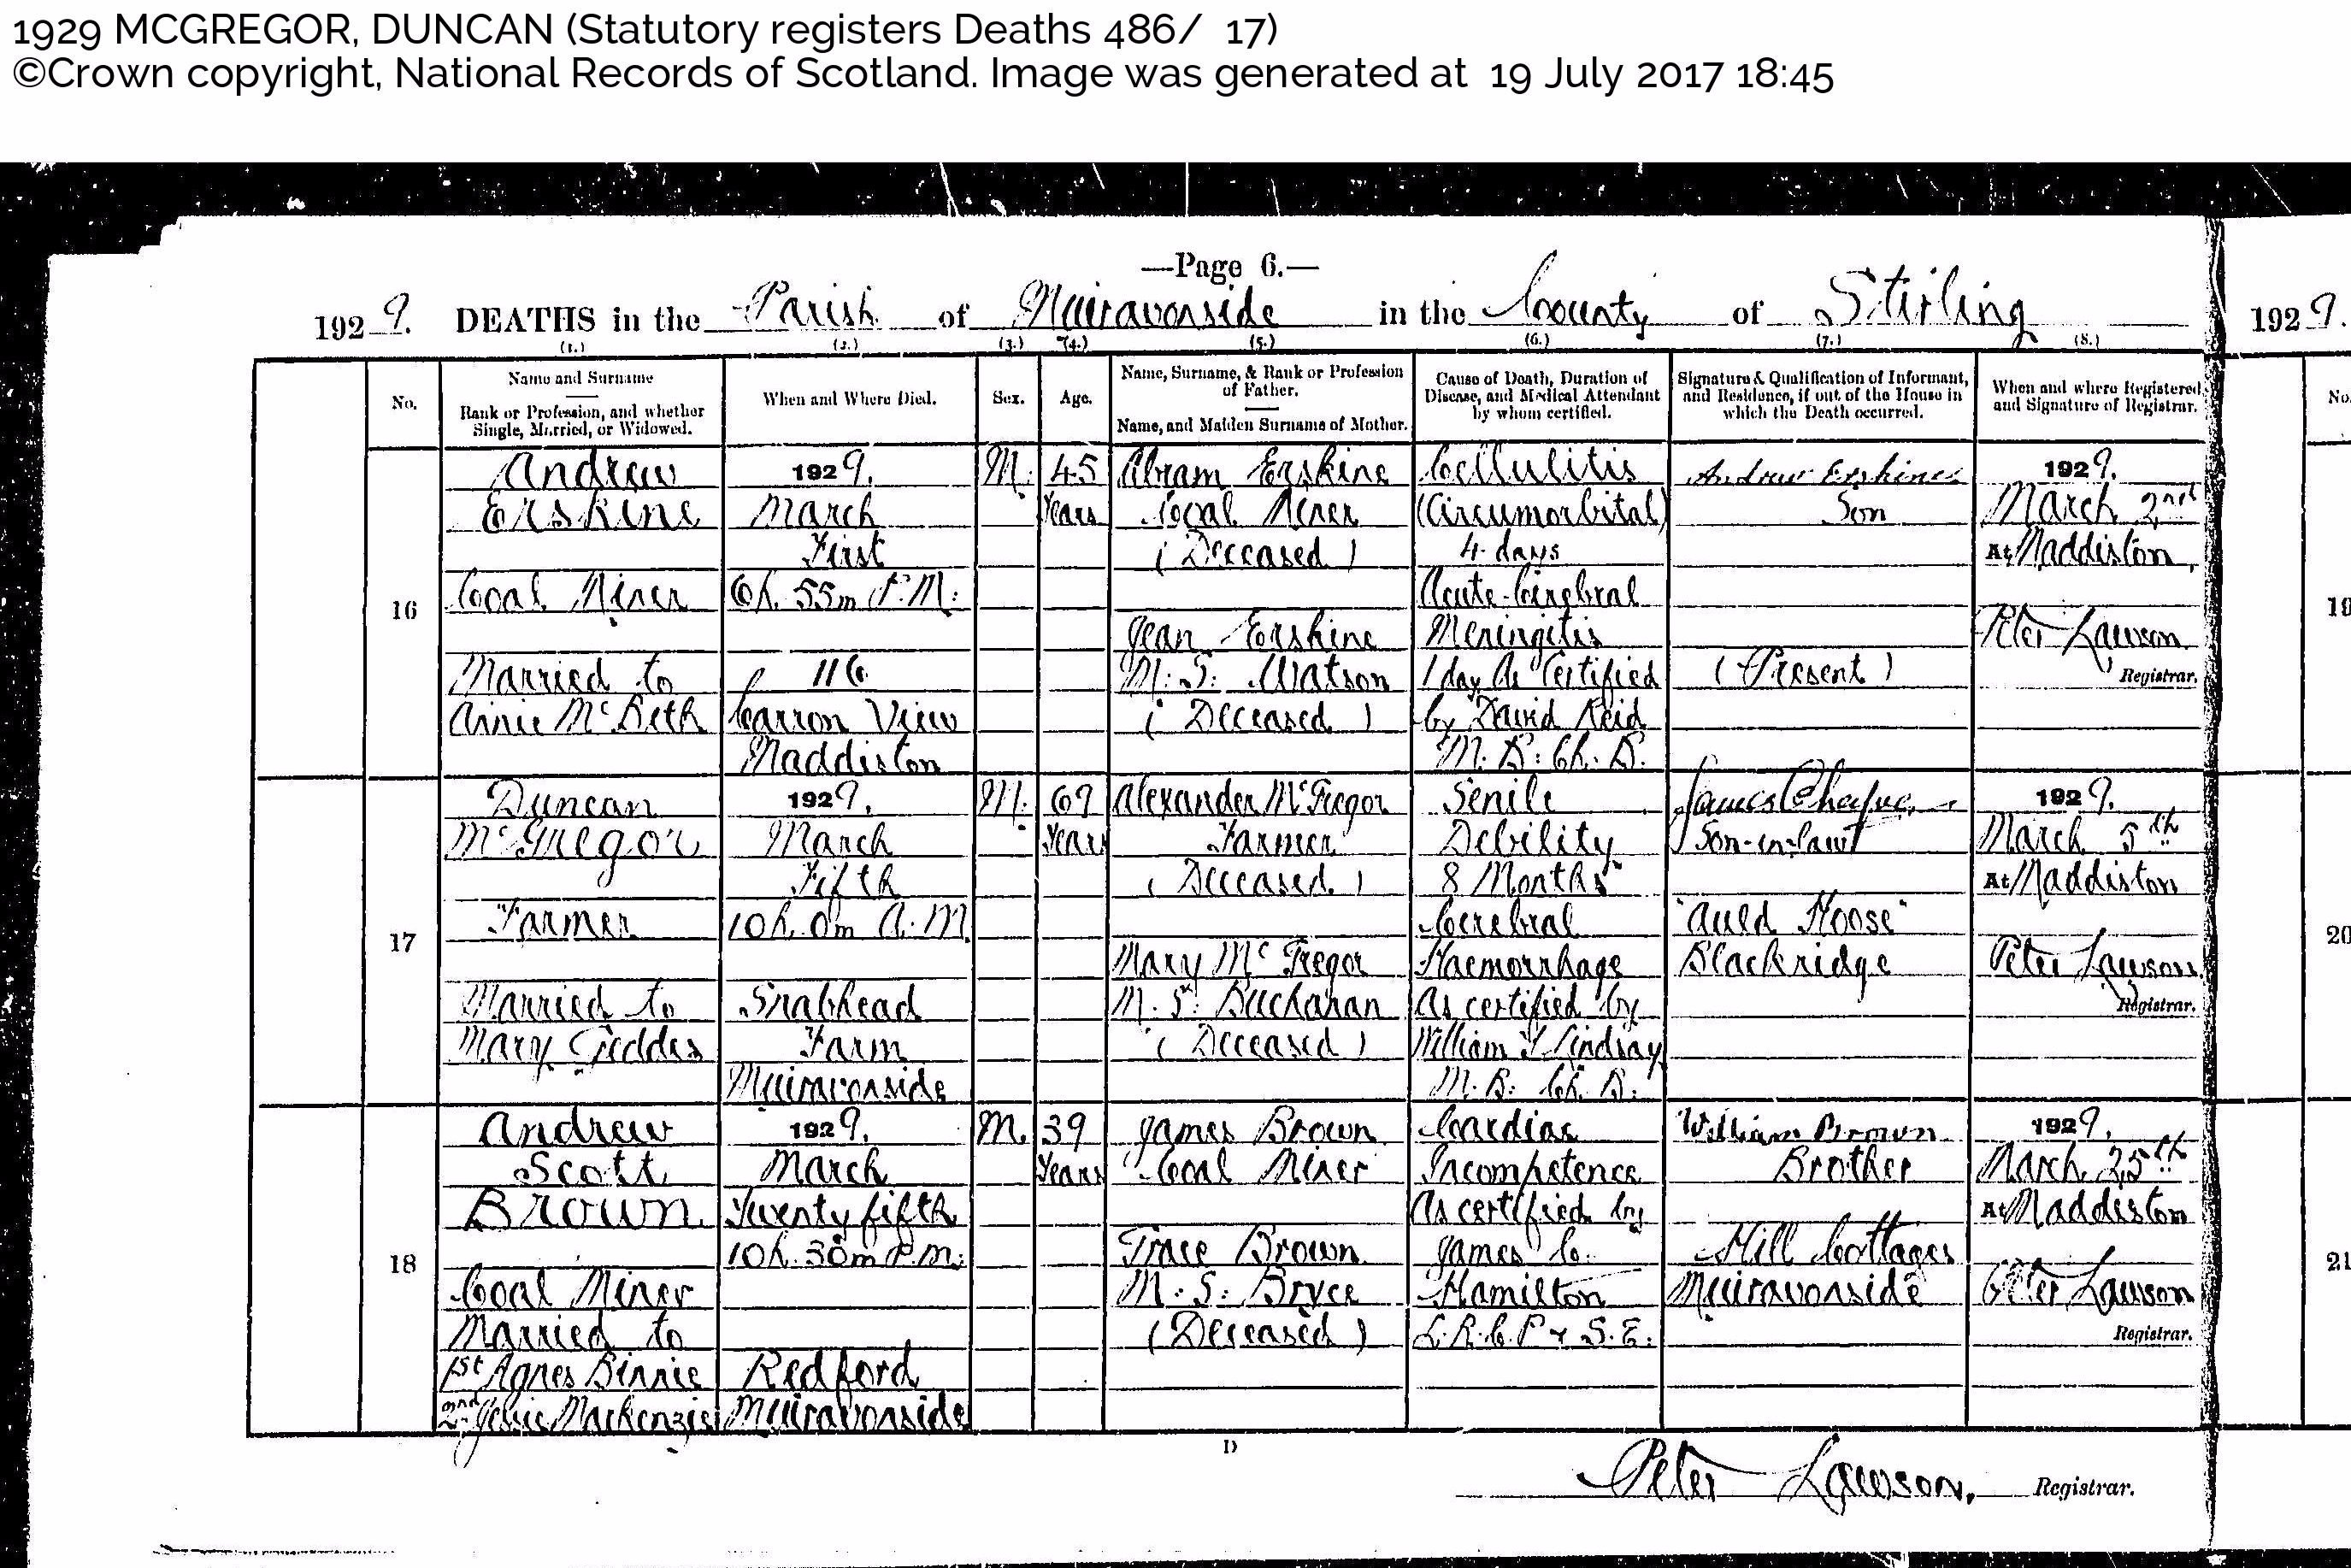 1929 MCGREGOR, DUNCAN (Statutory registers Deaths 486/ 17)
©Crown copyright, National Records of Scotland. Image was generated at 19 July 2017 18:45
—Page 6.—
1929. DEATHS in the Parish of Muiravonside in the County of Stirling
1929.
(1.) (2.) (3.) (4.) (5.) (6.) (7.) (8.)
No.
Name and Surname
Rank or Profession, and whether
Single, Married, or Widowed.
When and Where Died.
Sex.
Age.
Name, Surname, & Rank or Profession
of Father.
Name, and Maiden Surname of Mother.
Cause of Death, Duration of
Disease, and Medical Attendant
by whom certified.
Signature & Qualification of Informant,
and Residence, if out of the House in
which the Death occurred.
When and where Registered
and Signature of Registrar.
No.
16
Andrew
Erskine
Coal Miner
Married to
Annie McBeth
1929.
March
First
6h. 55m P.M.
116
Carron View
Maddiston
M.
45
Years
Abram Erskine
Coal Miner
(Deceased)
Jean Erskine
M.S. Watson
(Deceased)
Cellulitis
(Circumorbital)
4 days
Acute Cerebral
Meningitis
1 day As Certified
by David Reid
M.B. Ch.B.
Andrew Erskine
Son
(Present)
1929.
March 2nd
At Maddiston
Peter Lawson
Registrar.
19
17
Duncan
McGregor
Farmer
Married to
Mary Geddes
1929.
March
Fifth
10h. 0m A.M.
Snabhead
Farm
Muiravonside
M.
69
Years
Alexander McGregor
Farmer
(Deceased)
Mary McGregor
M.S. Buchanan
(Deceased)
Senile
Debility
8 Months
Cerebral
Haemorrhage
As certified by
William Lindsay
M.B. Ch.B.
James Cheyne
Son-in-law
"Auld Hoose"
Blackridge
1929.
March 5th
At Maddiston
Peter Lawson
Registrar.
20
18
Andrew
Scott
Brown
Coal Miner
Married to
1st Agnes Binnie
2nd Jessie Mackenzie
1929.
March
Twenty fifth
10h. 30m P.M.
Redford
Muiravonside
M.
39
Years
James Brown
Coal Miner
Grace Brown
M.S. Bryce
(Deceased)
Cardiac
Incompetence
As certified by
James C.
Hamilton
L.R.C.P & S.E.
William Brown
Brother
Hill Cottages
Muiravonside
1929.
March 25th
At Maddiston
Peter Lawson
Registrar.
21
D
Peter Lawson, Registrar.